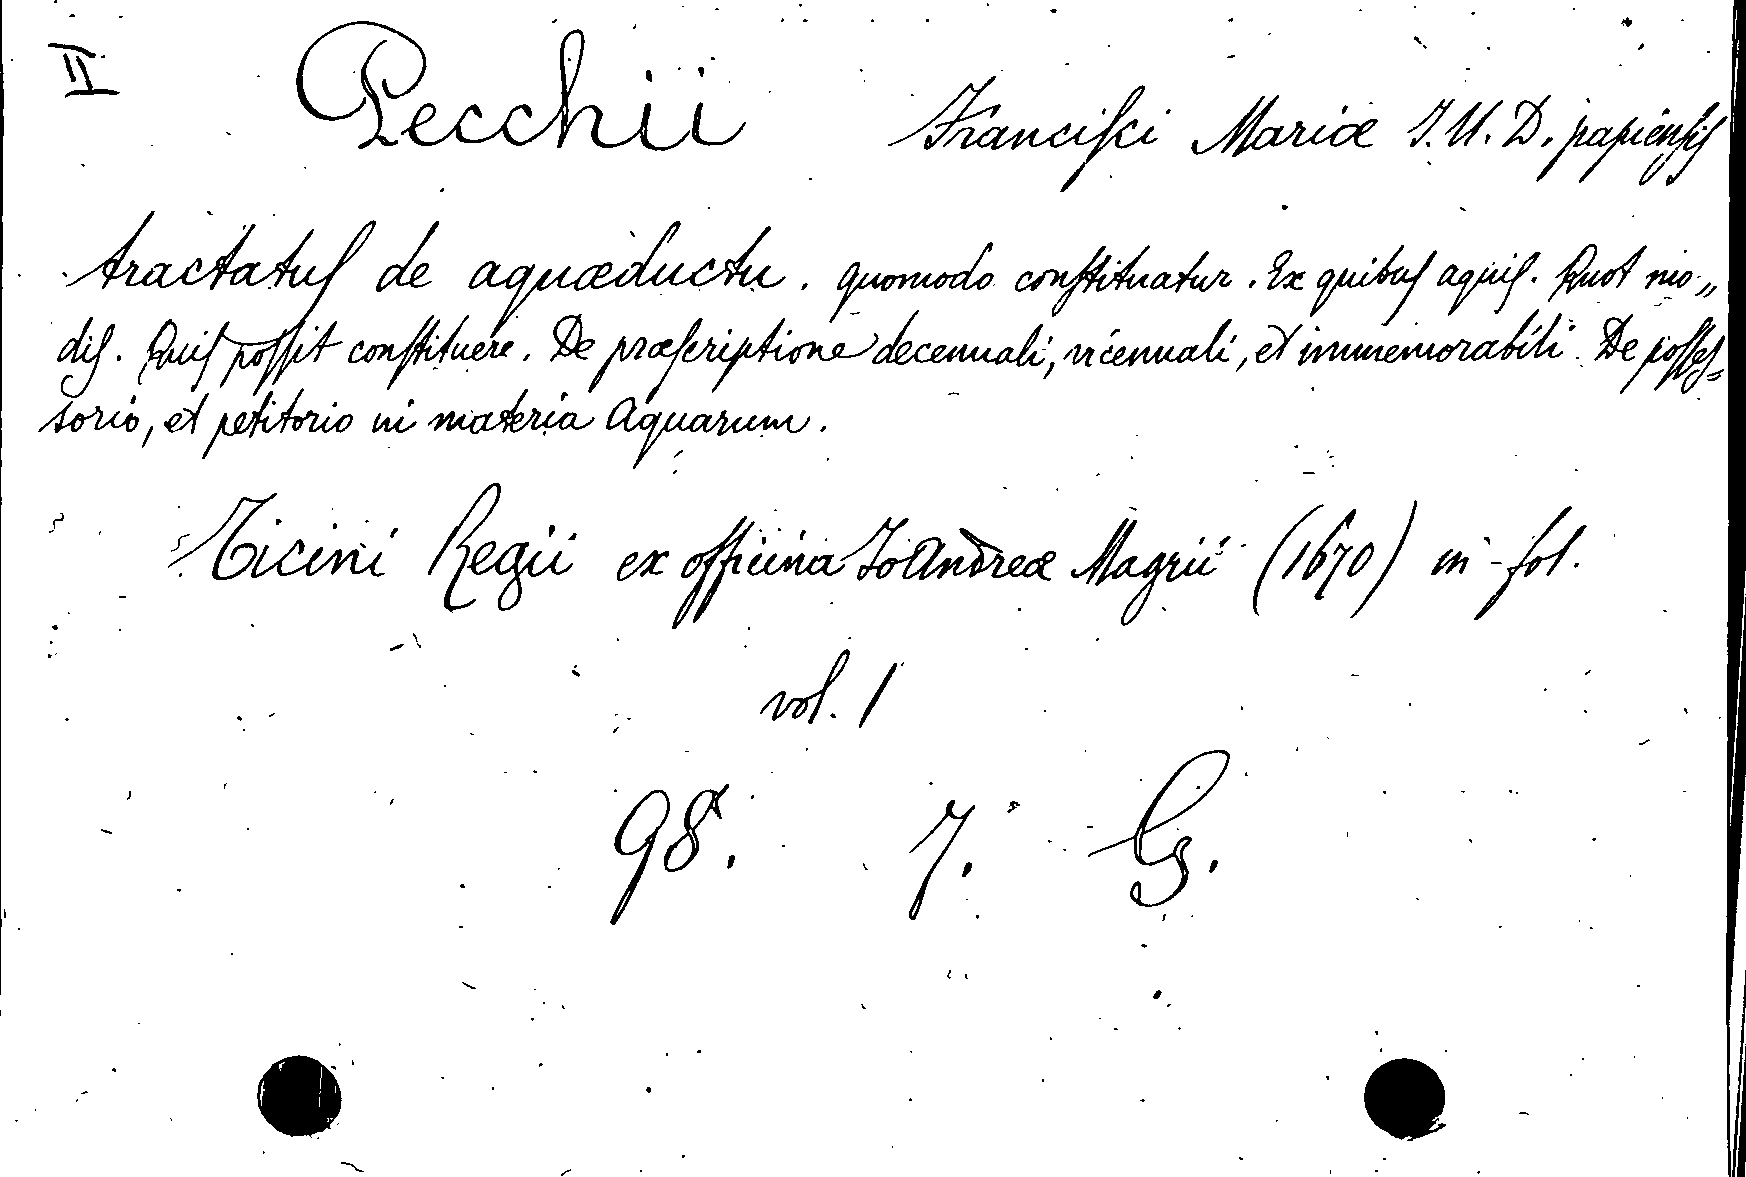 II Pecchii Franciſci Mariæ J. U. D. papienſiſ
tractatuſ de aquæductu. quomodo conſtituatur. Ex quibuſ aquiſ. Quot mo„
diſ. Quiſ poſſit conſtituere. De præſcriptione decennali, vicennali, et immemorabili. De poſſeſ=
sorio, et petitorio in materia Aquarum.
Ticini Regii ex officina JoAndreæ Magrii (1670) in-fol.
vol. 1
98. 7. G.